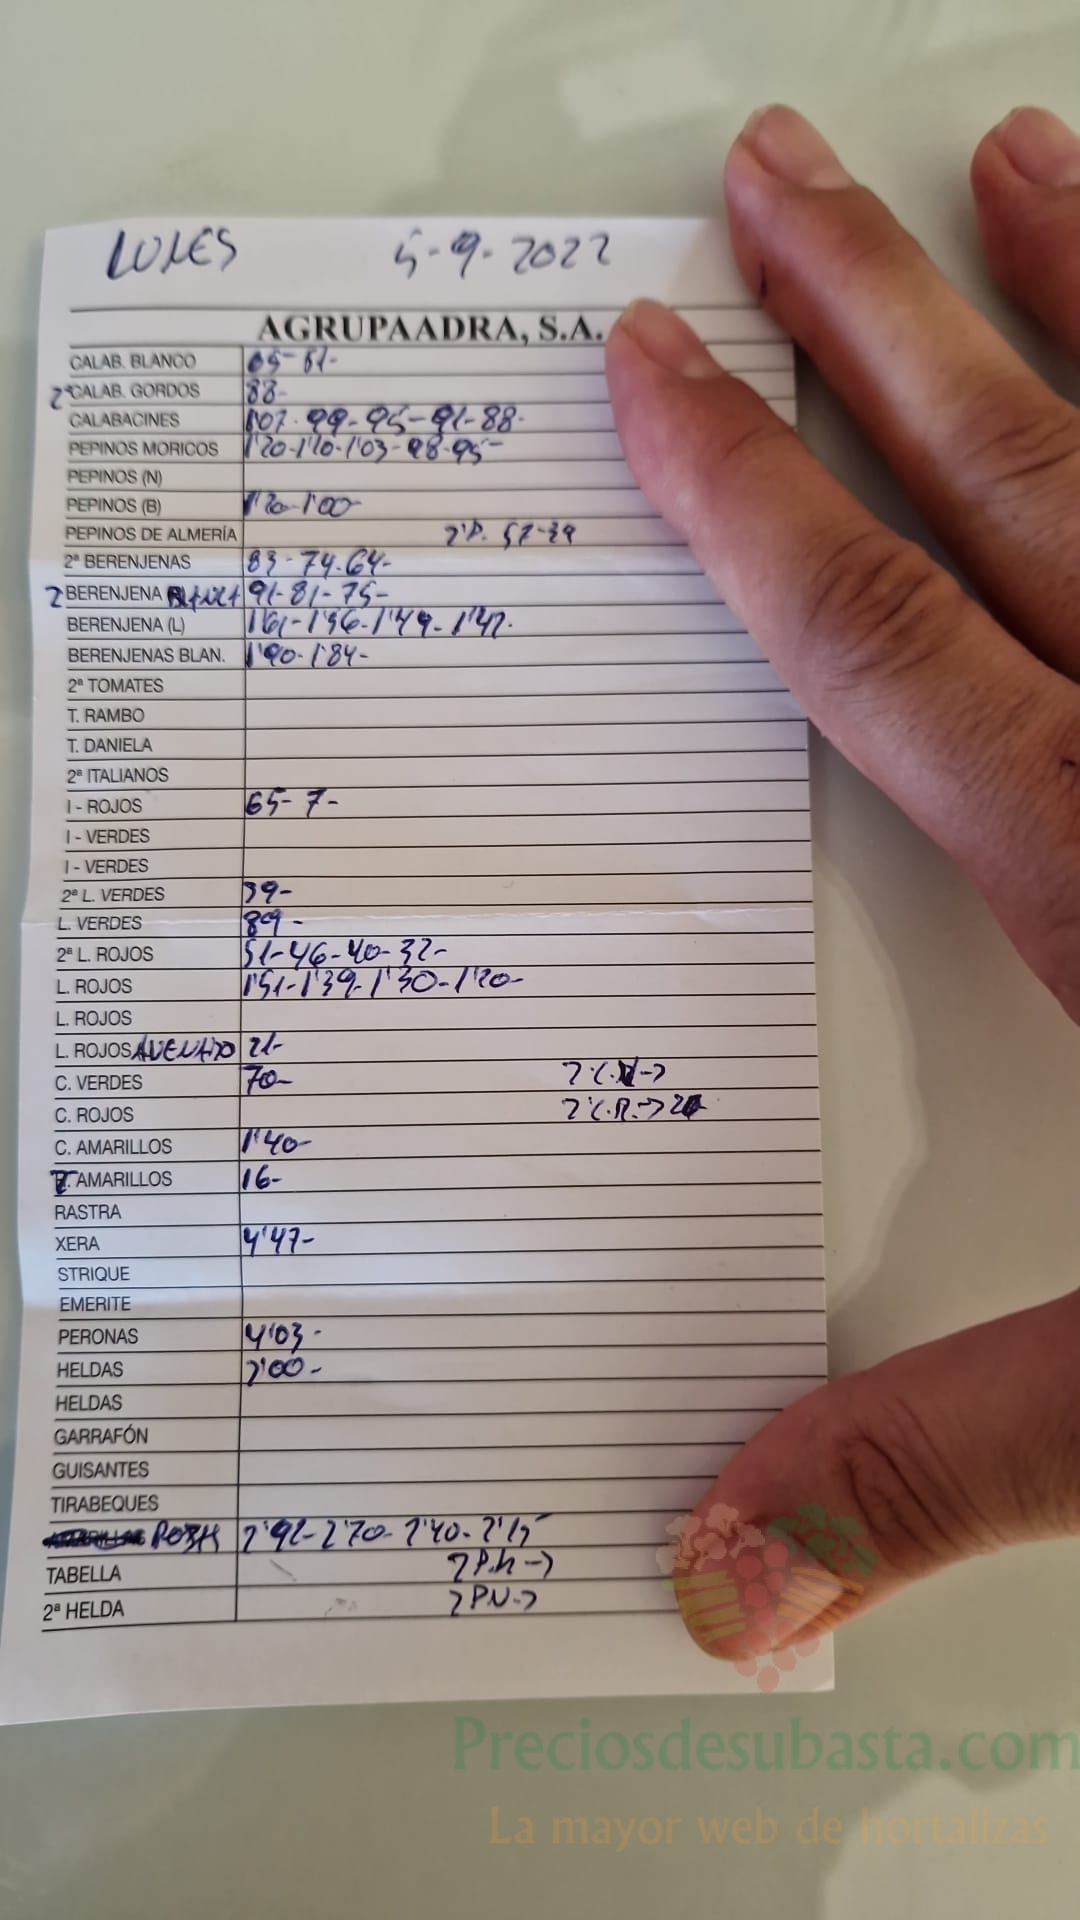 LUNES 5-9-2022
AGRUPAADRA, S.A.
CALAB. BLANCO 65-61-
2ª CALAB. GORDOS 88-
CALABACINES 1'07-99-95-91-88-
PEPINOS MORICOS 1'20-1'10-1'03-98-95-
PEPINOS (N)
PEPINOS (B) 1'20-1'00-
PEPINOS DE ALMERÍA 2ªP. 57-39
2ª BERENJENAS 83-74-64-
2 BERENJENA BLANCA 91-81-75-
BERENJENA (L) 1'61-1'56-1'49-1'42-
BERENJENAS BLAN. 1'90-1'84-
2ª TOMATES
T. RAMBO
T. DANIELA
2ª ITALIANOS
I - ROJOS 65-7-
I - VERDES
I - VERDES
2ª L. VERDES 39-
L. VERDES 89-
2ª L. ROJOS 51-46-40-32-
L. ROJOS 1'51-1'39-1'30-1'20-
L. ROJOS
L. ROJOS AVENADO 21-
C. VERDES 70- 2ªC.V->
C. ROJOS 2ªC.R.->
C. AMARILLOS 1'40-
AMARILLOS 16-
RASTRA
XERA 4'47-
STRIQUE
EMERITE
PERONAS 4'03-
HELDAS 2'00-
HELDAS
GARRAFÓN
GUISANTES
TIRABEQUES
2'92-2'70-2'40-2'15
TABELLA
2ª HELDA 2PN->
Preciosdesubasta.com
La mayor web de hortalizas